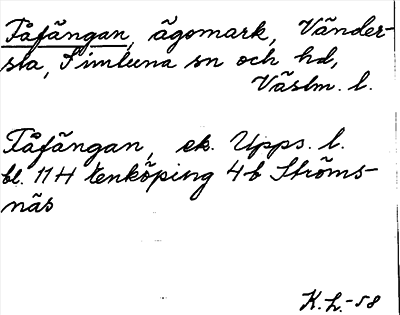 Fåfängan, ägomark, Vänder-
sta, Simtuna sn och hd,
Västm. l.
Fåfängan, ek. Upps. l.
bl. 11H Enköping 4b Ströms-
näs
K.h.-58